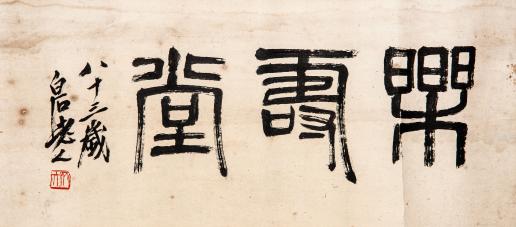 樂壽堂
八十三歲
白石老人